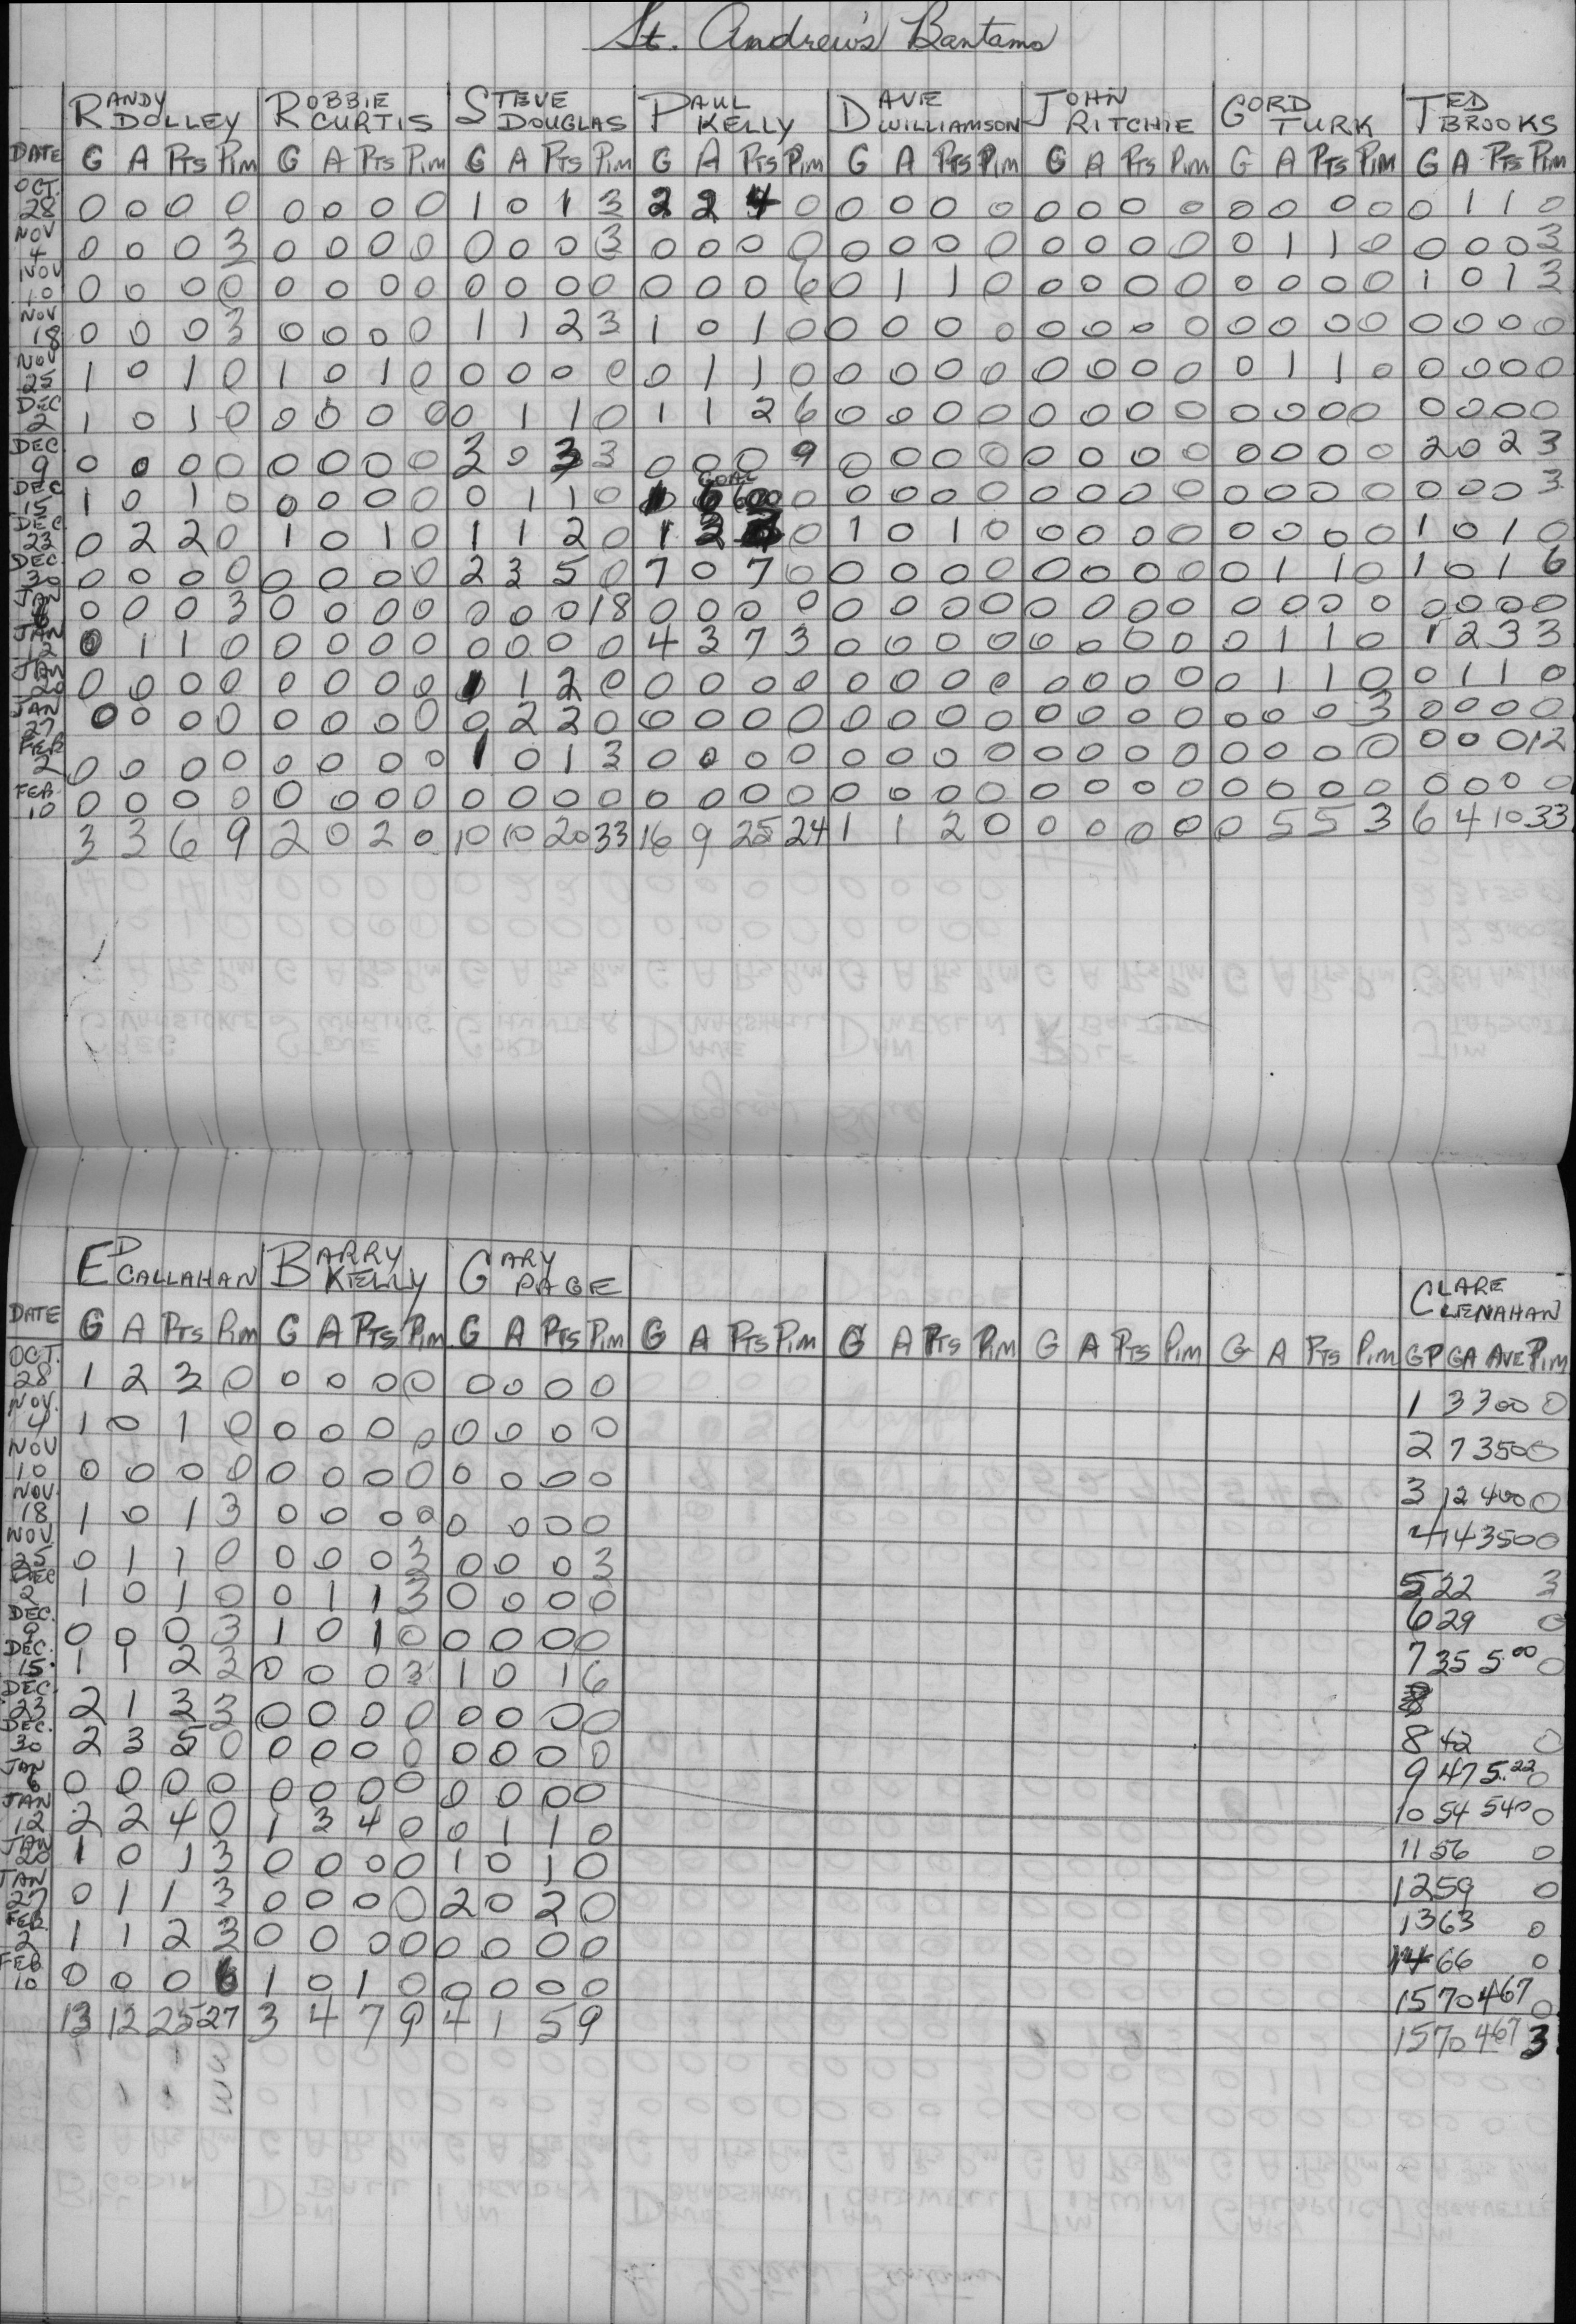 St. Andrew's Bantams
RANDY DOLLEY ROBBIE CURTIS STEVE DOUGLAS PAUL KELLY DAVE WILLIAMSON JOHN RITCHIE GORD TURK TED BROOKS
DATE G A PTS PIM G A PTS PIM G A PTS PIM G A PTS PIM G A PTS PIM G A PTS PIM G A PTS PIM G A PTS PIM
OCT. 28 0 0 0 0 0 0 0 0 1 0 1 3 2 2 4 0 0 0 0 0 0 0 0 0 0 0 0 0 0 1 1 0
NOV 4 0 0 0 3 0 0 0 0 0 0 0 3 0 0 0 0 0 0 0 0 0 0 0 0 0 1 1 0 0 0 0 3
NOV 10 0 0 0 0 0 0 0 0 0 0 0 0 0 0 0 6 0 1 1 0 0 0 0 0 0 0 0 0 1 0 1 3
NOV 18 0 0 0 3 0 0 0 0 1 1 2 3 1 0 1 0 0 0 0 0 0 0 0 0 0 0 0 0 0 0 0 0
NOV 25 1 0 1 0 1 0 1 0 0 0 0 0 0 1 1 0 0 0 0 0 0 0 0 0 0 1 1 0 0 0 0 0
DEC 2 1 0 1 0 0 0 0 0 0 1 1 0 1 1 2 6 0 0 0 0 0 0 0 0 0 0 0 0 0 0 0 0
DEC. 9 0 0 0 0 0 0 0 0 3 0 3 3 0 0 0 9 0 0 0 0 0 0 0 0 0 0 0 0 2 0 2 3
GOAL
DEC 15 1 0 1 0 0 0 0 0 0 1 1 0 1 6 600 0 0 0 0 0 0 0 0 0 0 0 0 0 0 0 0 3
DEC 23 0 2 2 0 1 0 1 0 1 1 2 0 1 2 0 1 0 1 0 0 0 0 0 0 0 0 0 1 0 1 0
DEC. 30 0 0 0 0 0 0 0 0 2 3 5 0 7 0 7 0 0 0 0 0 0 0 0 0 0 1 1 0 1 0 1 6
JAN 6 0 0 0 3 0 0 0 0 0 0 0 18 0 0 0 0 0 0 0 0 0 0 0 0 0 0 0 0 0 0 0 0
JAN 12 0 1 1 0 0 0 0 0 0 0 0 0 4 3 7 3 0 0 0 0 0 0 0 0 0 1 1 0 1 2 3 3
JAN 20 0 0 0 0 0 0 0 0 1 1 2 0 0 0 0 0 0 0 0 0 0 0 0 0 0 1 1 0 0 1 1 0
JAN 27 0 0 0 0 0 0 0 0 0 2 2 0 0 0 0 0 0 0 0 0 0 0 0 0 0 0 0 3 0 0 0 0
FEB 2 0 0 0 0 0 0 0 0 1 0 1 3 0 0 0 0 0 0 0 0 0 0 0 0 0 0 0 0 0 0 0 12
FEB. 10 0 0 0 0 0 0 0 0 0 0 0 0 0 0 0 0 0 0 0 0 0 0 0 0 0 0 0 0 0 0 0 0
3 3 6 9 2 0 2 0 10 10 20 33 16 9 25 24 1 1 2 0 0 0 0 0 0 5 5 3 6 4 10 33
ED CALLAHAN BARRY KELLY GARY PAGE CLARE CLENAHAN
DATE G A PTS PIM G A PTS PIM G A PTS PIM G A PTS PIM G A PTS PIM G A PTS PIM G A PTS PIM GP GA AVE PIM
OCT. 28 1 2 3 0 0 0 0 0 0 0 0 0 1 3 300 0
NOV. 4 1 0 1 0 0 0 0 0 0 0 0 0 2 7 350 0
NOV 10 0 0 0 0 0 0 0 0 0 0 0 0 3 12 400 0
NOV. 18 1 0 1 3 0 0 0 0 0 0 0 0 4 14 350 0
NOV 25 0 1 1 0 0 0 0 3 0 0 0 3 5 22 3
DEC 2 1 0 1 0 0 1 1 3 0 0 0 0 6 29 0
DEC. 9 0 0 0 3 1 0 1 0 0 0 0 0 7 35 5.00 0
DEC. 15 1 1 2 3 0 0 0 3 1 0 1 6
DEC. 23 2 1 3 3 0 0 0 0 0 0 0 0 8 42 0
DEC. 30 2 3 5 0 0 0 0 0 0 0 0 0 9 47 5.22 0
JAN 6 0 0 0 0 0 0 0 0 0 0 0 0 10 54 540 0
JAN 12 2 2 4 0 1 3 4 0 0 1 1 0 11 56 0
JAN 20 1 0 1 3 0 0 0 0 1 0 1 0 12 59 0
JAN 27 0 1 1 3 0 0 0 0 2 0 2 0 13 63 0
FEB. 2 1 1 2 3 0 0 0 0 0 0 0 0 14 66 0
FEB 10 0 0 0 6 1 0 1 0 0 0 0 0 15 70 467 0
13 12 25 27 3 4 7 9 4 1 5 9 15 70 467 3